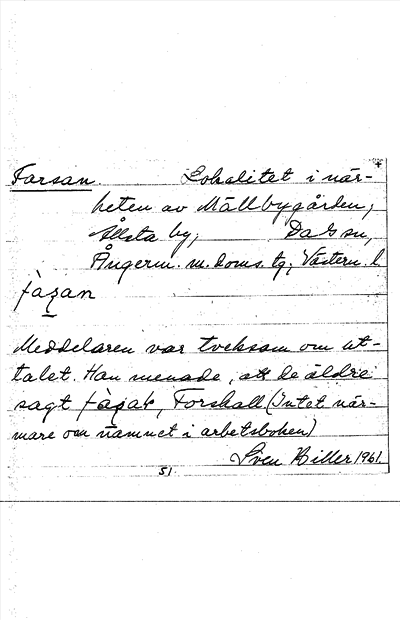 Farsan Lokalitet i när-
heten av Mällbygården,
Ålsta by, Dals sn,
Ångerm. m. doms. tg, Västern. l.
fàzan
Meddelaren var tveksam om ut-
talet. Han menade, att de äldre
sagt Forshall (Intet när-
mare om namnet i arbetsboken)
Sven Hiller 1961.
51